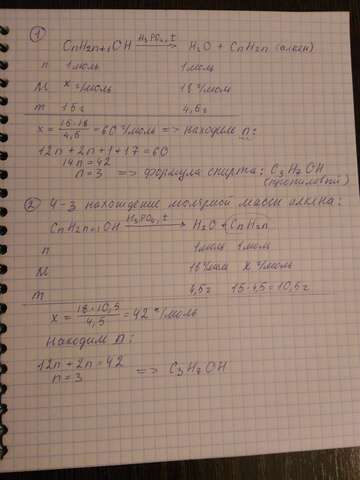 ①
CnH2n+1OH H3PO4, t → H2O + CnH2n (алкен)
n 1 моль 1 моль
M x г/моль 18 г/моль
m 15 г 4,5 г
x = 15·18 / 4,5 = 60 г/моль => находим n:
12n + 2n + 1 + 17 = 60
14n = 42
n = 3 => формула спирта: C3H7OH
(пропиловый)
② Ч-з нахождение молярной массы алкена:
CnH2n+1OH H3PO4, t → H2O + CnH2n
n 1 моль 1 моль
M 18 г/моль x г/моль
m 4,5 г 15-4,5=10,5 г
x = 18·10,5 / 4,5 = 42 г/моль
Находим n:
12n + 2n = 42
n = 3 => C3H7OH